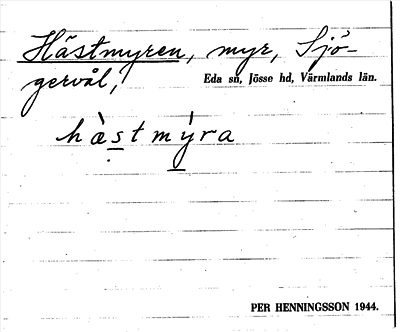 Hästmyren, myr, Sjö-
gervål, Eda sn, Jösse hd, Värmlands län.
hæ̀stmýra
PER HENNINGSSON 1944.